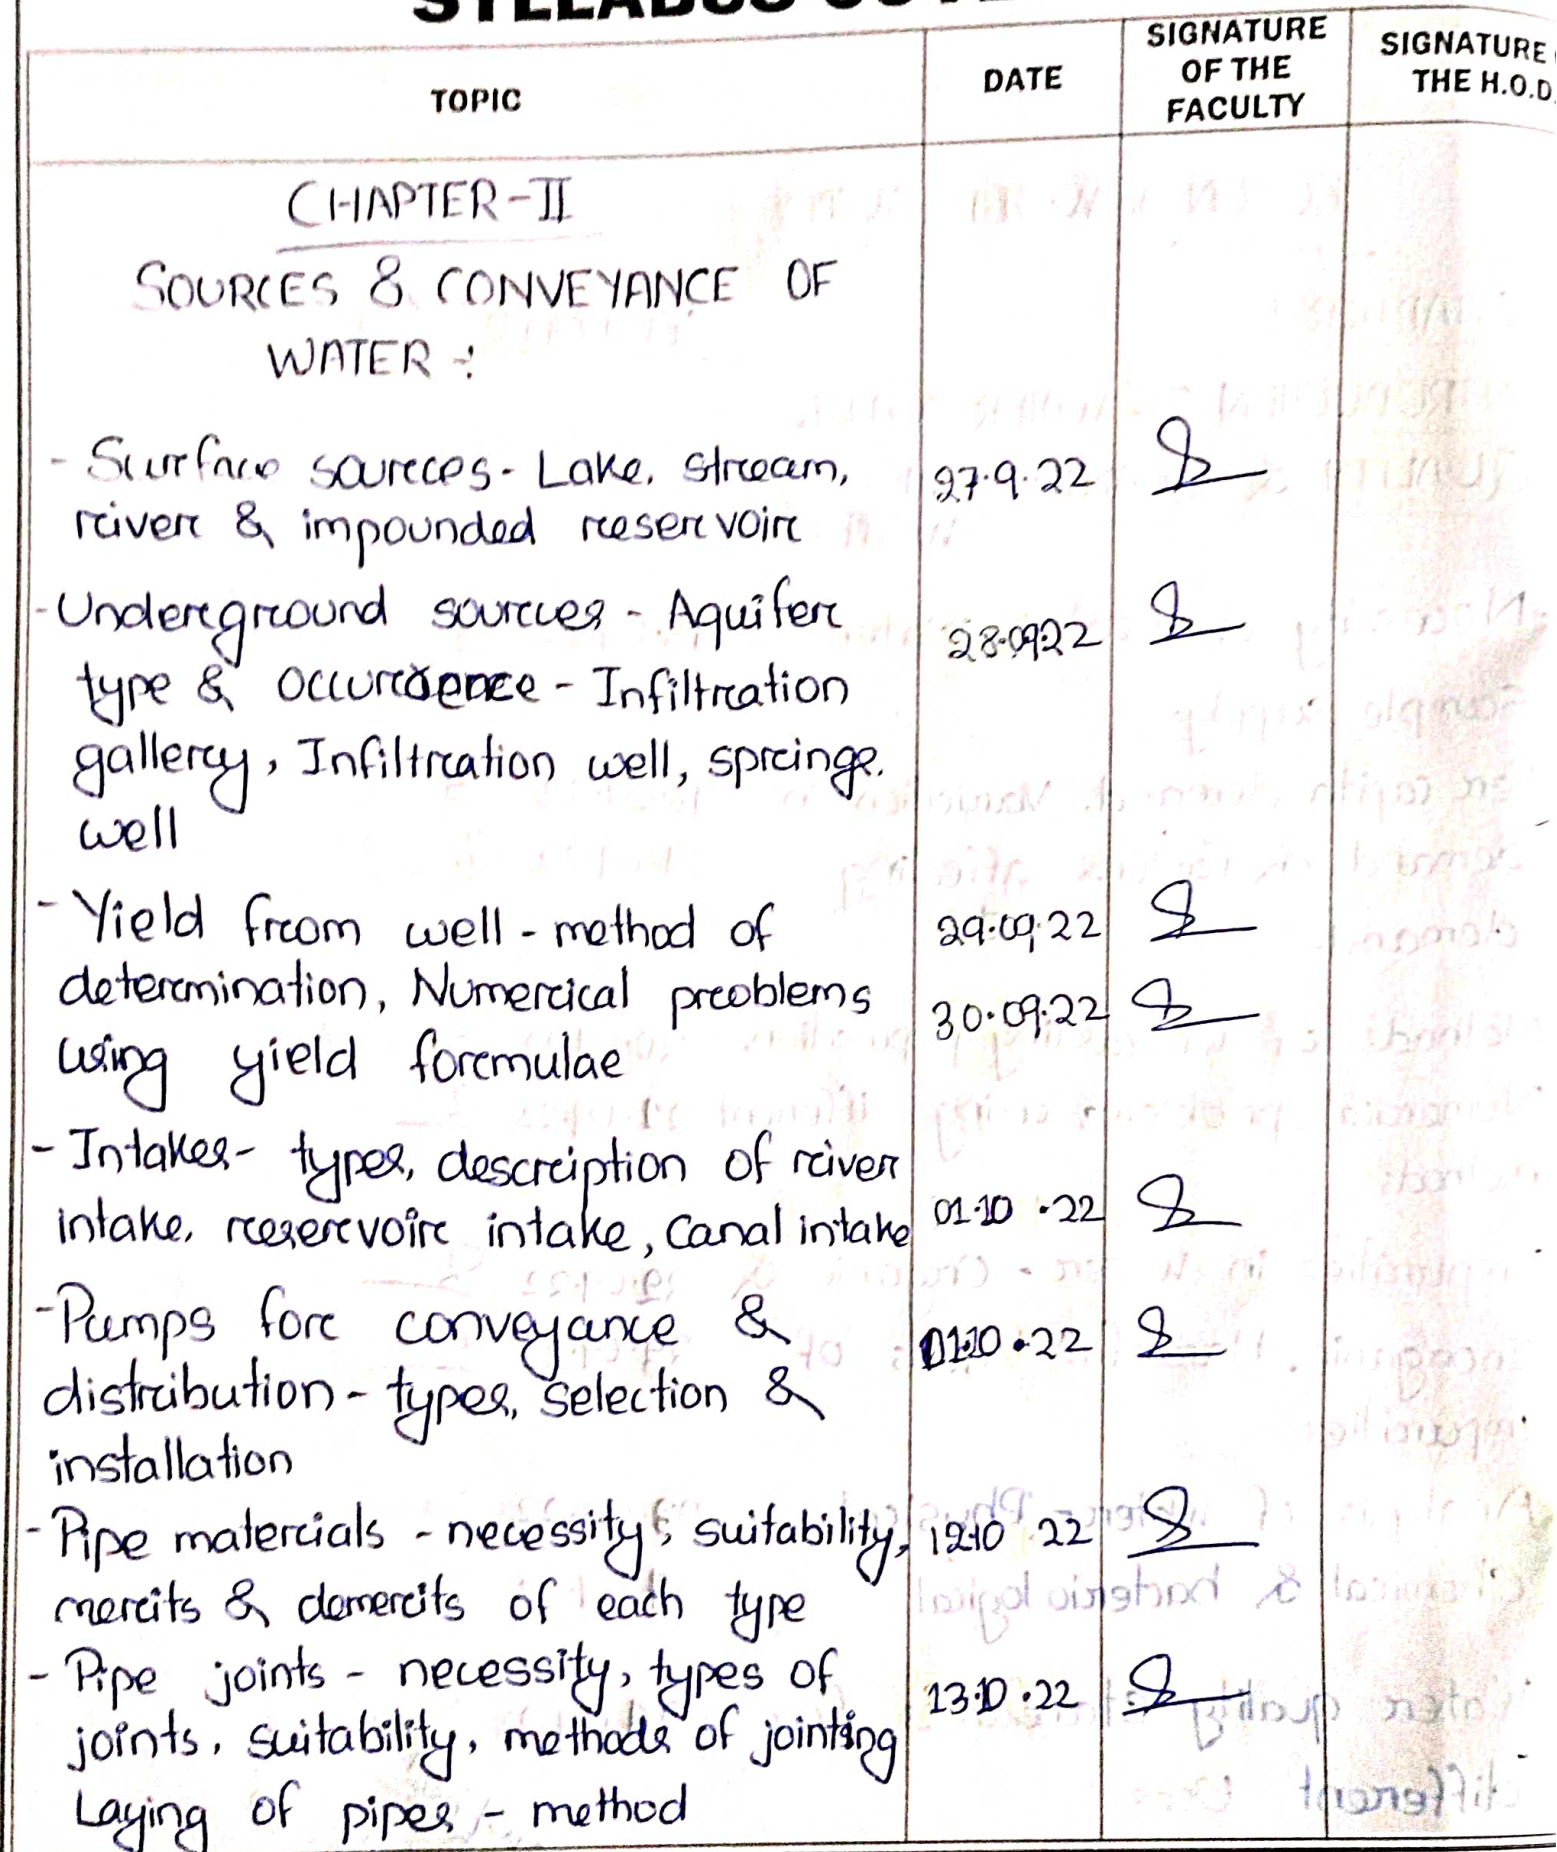 TOPIC
DATE
SIGNATURE OF THE FACULTY
SIGNATURE
THE H.O.D.
CHAPTER-II
SOURCES & CONVEYANCE OF
WATER :
- Surface sources - Lake, stream, 27.9.22
river & impounded reservoir
- Underground sources - Aquifer 28.09.22
type & occurrence - Infiltration
gallery, Infiltration well, springe.
well
- Yield from well - method of 29.09.22
determination, Numerical problems 30.09.22
using yield formulae
- Intakes - types, description of river
intake, reservoir intake, canal intake 01.10.22
- Pumps for conveyance & 01.10.22
distribution - types, selection &
installation
- Pipe materials - necessity, suitability, 12.10.22
merits & demerits of each type
- Pipe joints - necessity, types of 13.10.22
joints, suitability, methods of jointing
Laying of pipes - method